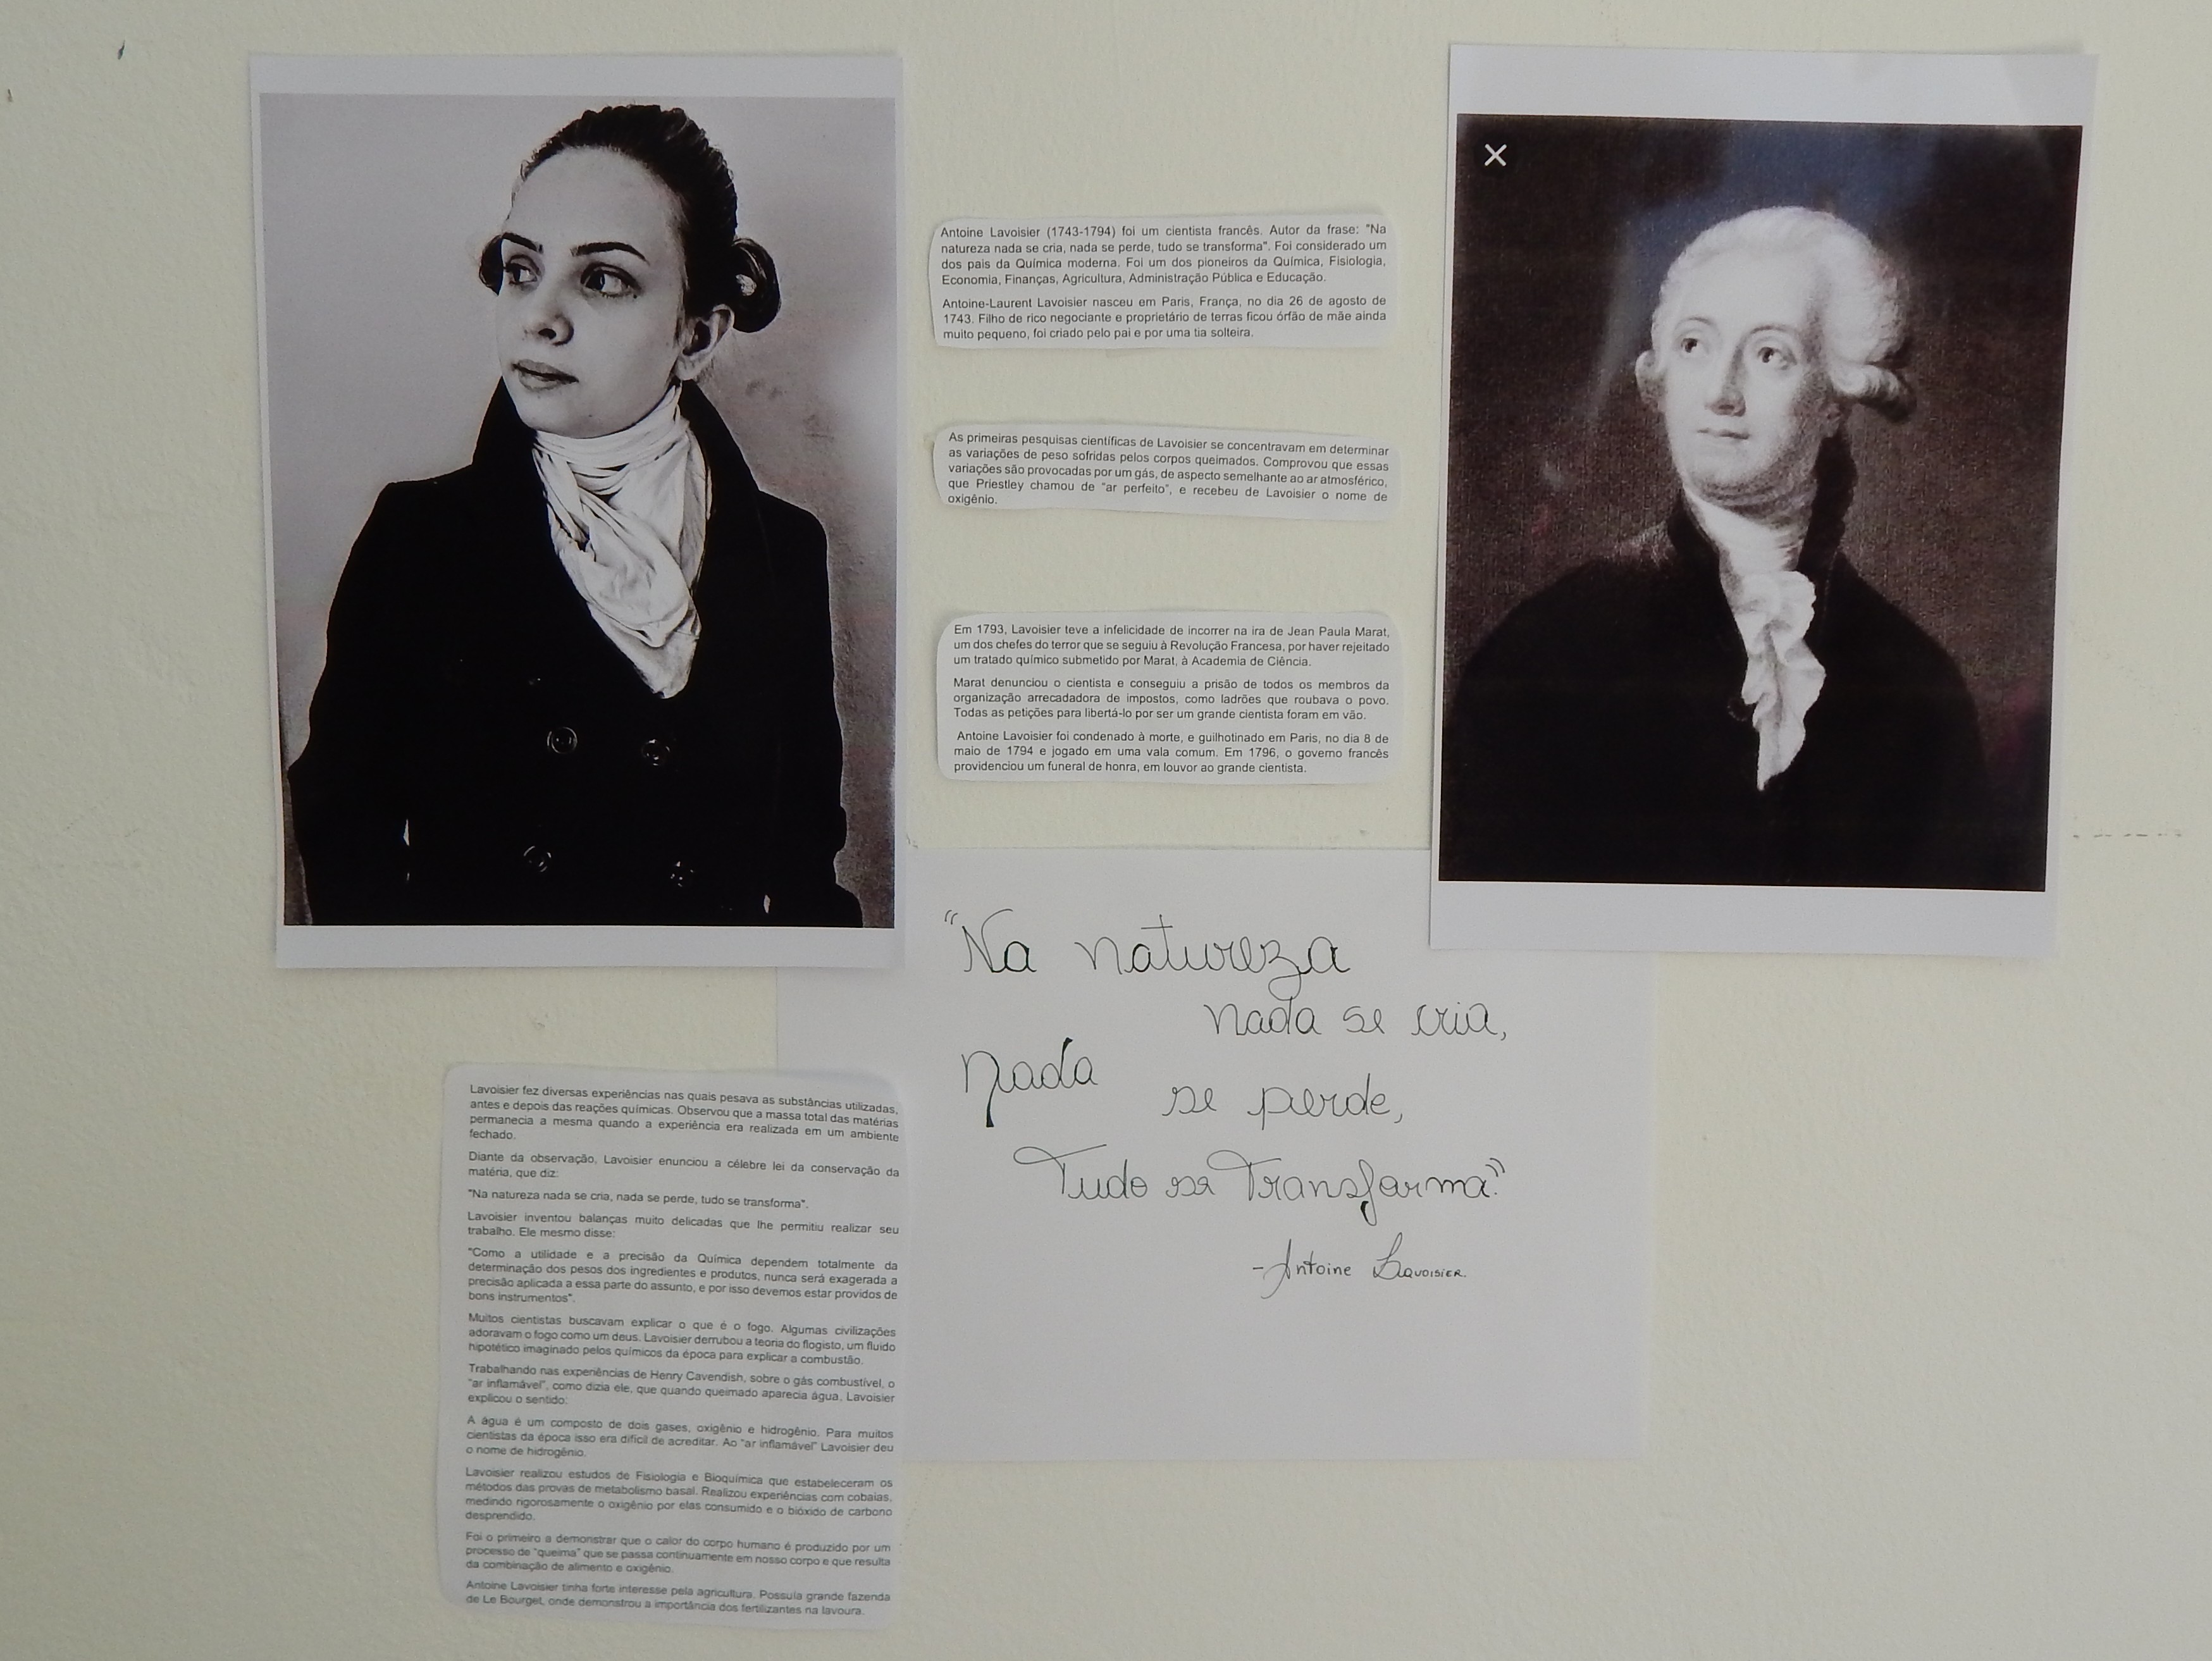 Antoine Lavoisier (1743-1794) foi um cientista francês. Autor da frase: "Na
natureza nada se cria, nada se perde, tudo se transforma". Foi considerado um
dos pais da Química moderna. Foi um dos pioneiros da Química, Fisiologia,
Economia, Finanças, Agricultura, Administração Pública e Educação.
Antoine-Laurent Lavoisier nasceu em Paris, França, no dia 26 de agosto de
1743. Filho de rico negociante e proprietário de terras ficou órfão de mãe ainda
muito pequeno, foi criado pelo pai e por uma tia solteira.
As primeiras pesquisas científicas de Lavoisier se concentravam em determinar
as variações de peso sofridas pelos corpos queimados. Comprovou que essas
variações são provocadas por um gás, de aspecto semelhante ao ar atmosférico,
que Priestley chamou de "ar perfeito", e recebeu de Lavoisier o nome de
oxigênio.
Em 1793, Lavoisier teve a infelicidade de incorrer na ira de Jean Paula Marat,
um dos chefes do terror que se seguiu à Revolução Francesa, por haver rejeitado
um tratado químico submetido por Marat, à Academia de Ciência.
Marat denunciou o cientista e conseguiu a prisão de todos os membros da
organização arrecadadora de impostos, como ladrões que roubava o povo.
Todas as petições para libertá-lo por ser um grande cientista foram em vão.
Antoine Lavoisier foi condenado à morte, e guilhotinado em Paris, no dia 8 de
maio de 1794 e jogado em uma vala comum. Em 1796, o governo francês
providenciou um funeral de honra, em louvor ao grande cientista.
"Na natureza
nada se cria,
nada se perde,
Tudo se Transforma."
- Antoine Lavoisier.
Lavoisier fez diversas experiências nas quais pesava as substâncias utilizadas,
antes e depois das reações químicas. Observou que a massa total das matérias
permanecia a mesma quando a experiência era realizada em um ambiente
fechado.
Diante da observação, Lavoisier enunciou a célebre lei da conservação da
matéria, que diz:
"Na natureza nada se cria, nada se perde, tudo se transforma".
Lavoisier inventou balanças muito delicadas que lhe permitiu realizar seu
trabalho. Ele mesmo disse:
"Como a utilidade e a precisão da Química dependem totalmente da
determinação dos pesos dos ingredientes e produtos, nunca será exagerada a
precisão aplicada a essa parte do assunto, e por isso devemos estar providos de
bons instrumentos".
Muitos cientistas buscavam explicar o que é o fogo. Algumas civilizações
adoravam o fogo como um deus. Lavoisier derrubou a teoria do flogisto, um fluido
hipotético imaginado pelos químicos da época para explicar a combustão.
Trabalhando nas experiências de Henry Cavendish, sobre o gás combustível, o
"ar inflamável", como dizia ele, que quando queimado aparecia água, Lavoisier
explicou o sentido:
A água é um composto de dois gases, oxigênio e hidrogênio. Para muitos
cientistas da época isso era difícil de acreditar. Ao "ar inflamável" Lavoisier deu
o nome de hidrogênio.
Lavoisier realizou estudos de Fisiologia e Bioquímica que estabeleceram os
métodos das provas de metabolismo basal. Realizou experiências com cobaias,
medindo rigorosamente o oxigênio por elas consumido e o bióxido de carbono
desprendido.
Foi o primeiro a demonstrar que o calor do corpo humano é produzido por um
processo de "queima" que se passa continuamente em nosso corpo e que resulta
da combinação de alimento e oxigênio.
Antoine Lavoisier tinha forte interesse pela agricultura. Possuía grande fazenda
de Le Bourget, onde demonstrou a importância dos fertilizantes na lavoura.